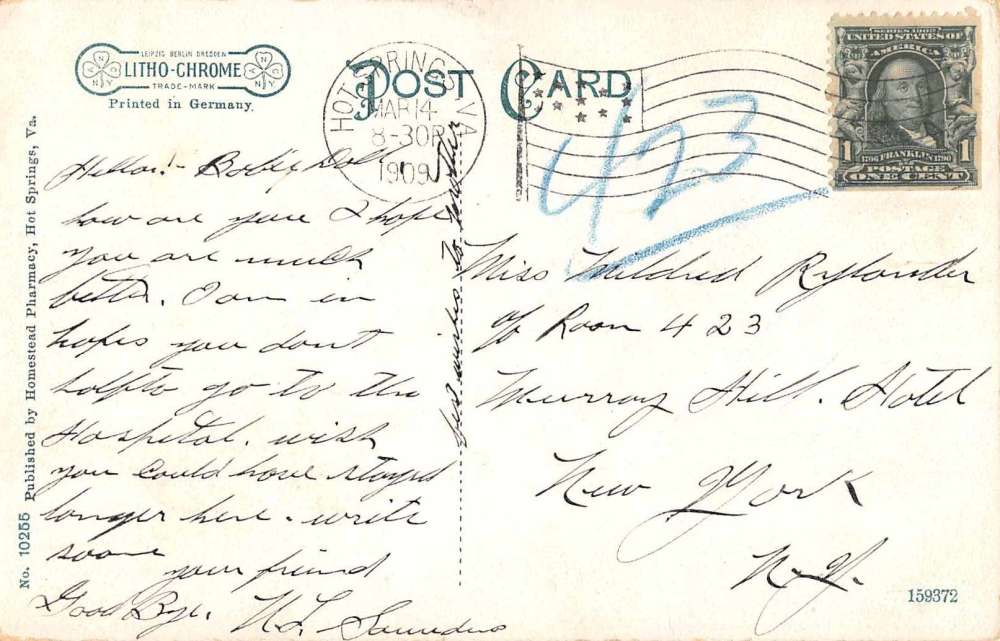 LEIPZIG BERLIN DRESDEN
LITHO-CHROME
TRADE-MARK
Printed in Germany.
POST CARD
HOT SPRINGS VA.
MAR 14
8-30P
1909
SERIES 1902
UNITED STATES OF
AMERICA
1 1706 FRANKLIN 1790 1
POSTAGE
ONE CENT
423
No. 10255 Published by Homestead Pharmacy, Hot Springs, Va.
Hello!- Doll
how are you I hope
you are much
better. I am in
hopes you don't
hafto go to the
Hospital. wish
you could have stayed
longer here. write
soon
your friend
Good Bye. Saunders
best wishes to mother
Miss Mildred Rylander
c/o Room 423
Murray Hill. Hotel
New York
N.Y.
159372